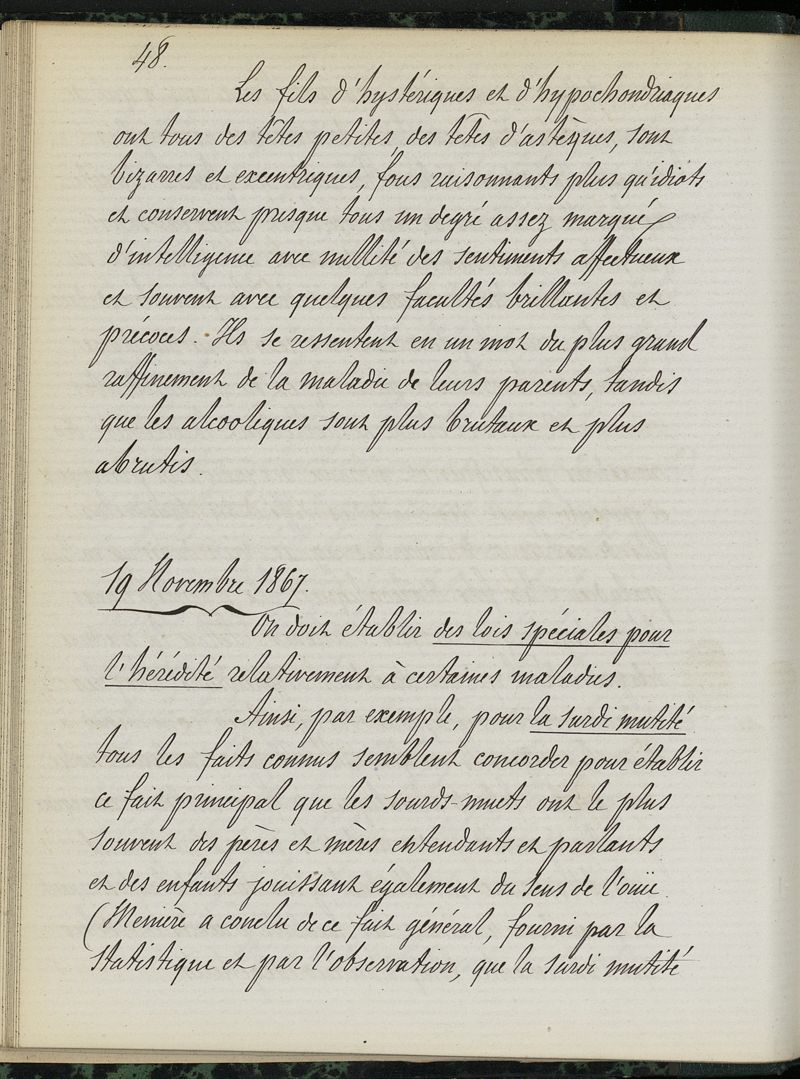 48.
Les fils d'hystériques et d'hypochondriaques
ont tous des têtes petites, des têtes d'astèques, sont
bizarres et excentriques, fous raisonnants plus qu'idiots
et conservent presque tous un degré assez marqué
d'intelligence avec nullité des sentiments affectueux
et souvent avec quelques facultés brillantes et
précoces. Ils se ressentent en un mot du plus grand
raffinement de la maladie de leurs parents, tandis
que les alcooliques sont plus brutaux et plus
abrutis.
19 Novembre 1867.
On doit établir des lois spéciales pour
l'hérédité relativement à certaines maladies.
Ainsi, par exemple, pour la surdi mutité
tous les faits connus semblent concorder pour établir
ce fait principal que les sourds-muets ont le plus
souvent des pères et mères entendants et parlants
et des enfants jouissant également du sens de l'ouïe.
(Menière a conclu de ce fait général, fourni par la
statistique et par l'observation, que la surdi mutité